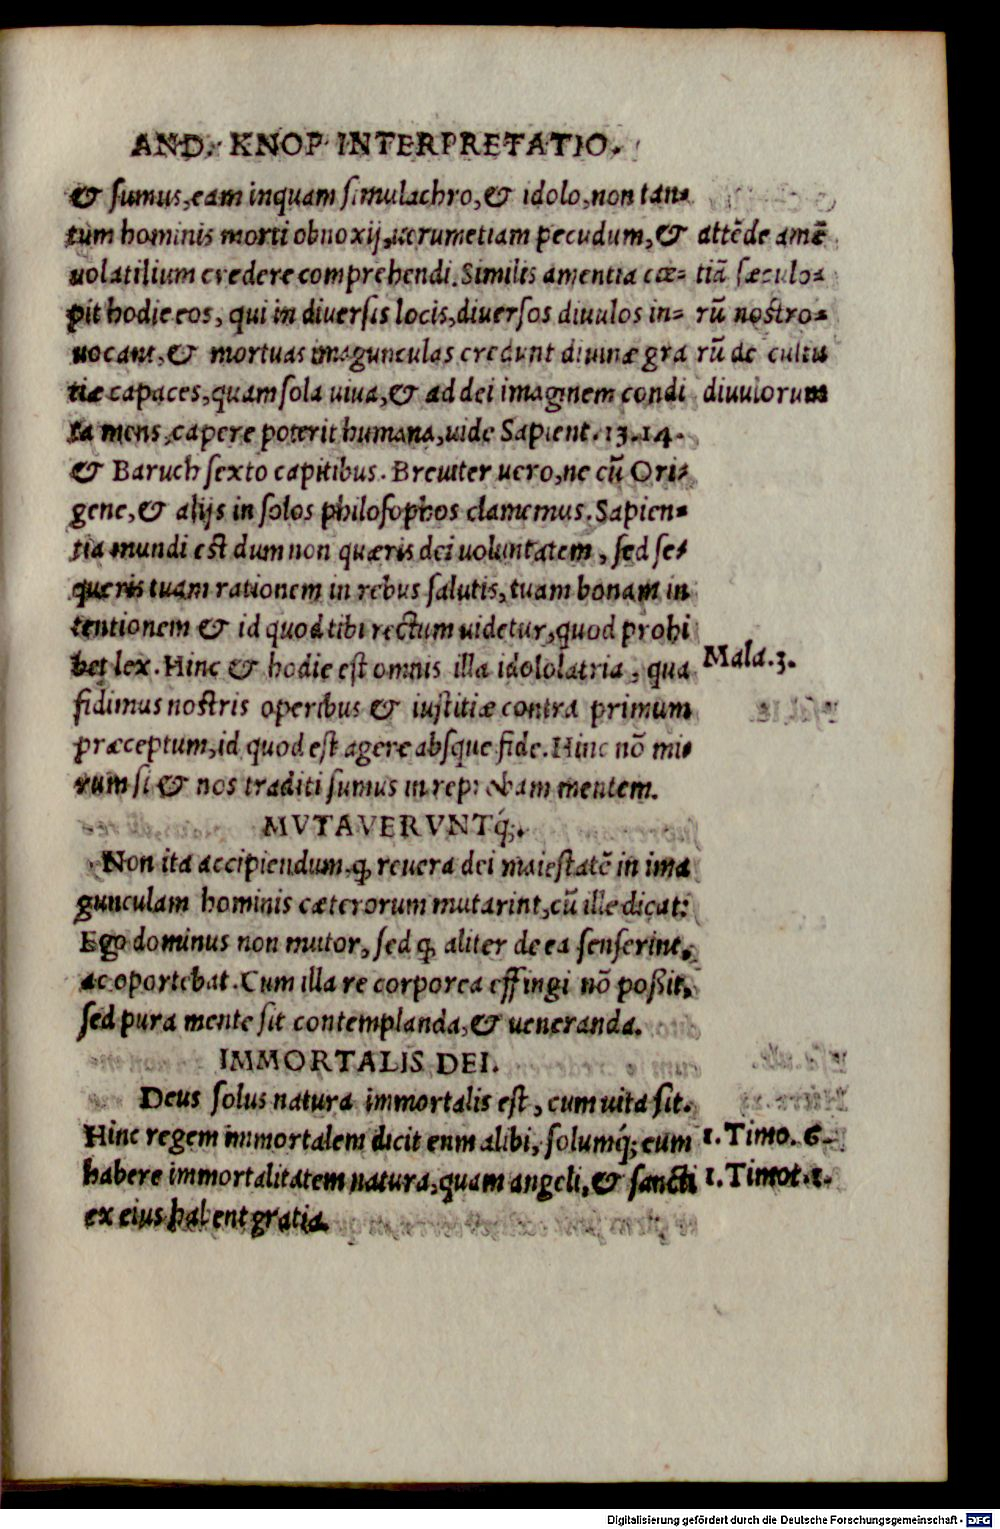 AND. KNOP INTERPRETATIO.
& sumus, eam inquam simulachro, & idolo, non tan-
tum hominis morti obnoxij, uerumetiam pecudum, &
uolatilium credere comprehendi. Similis amentia cœ-
pit hodie eos, qui in diuersis locis, diuersos diuulos in-
uocant, & mortuas imagunculas credunt diuinæ gra
tiæ capaces, quam sola uiua, & ad dei imaginem condi
ta mens, capere poterit humana, uide Sapient. 13. 14.
& Baruch sexto capitibus. Breuiter uero, ne cũ Ori-
gene, & alijs in solos philosophos clamemus. Sapien-
tia mundi est dum non quæris dei uoluntatem, sed se-
queris tuam rationem in rebus salutis, tuam bonam in
tentionem & id quod tibi rectum uidetur, quod prohi
bet lex. Hinc & hodie est omnis illa idololatria, qua
fidimus nostris operibus & iustitiæ contra primum
præceptum, id quod est agere absque fide. Hinc nõ mi-
rum si & nos traditi sumus in reprobam mentem.
MVTAVERVNTq́;.
Non ita accipiendum, ꝙ reuera dei maiestatẽ in ima
gunculam hominis cæterorum mutarint, cũ ille dicat:
Ego dominus non mutor, sed ꝙ aliter de ea senserint,
ac oportebat. Cum illa re corporea effingi nõ poßit,
sed pura mente sit contemplanda, & ueneranda.
IMMORTALIS DEI.
Deus solus natura immortalis est, cum uita sit.
Hinc regem immortalem dicit eum alibi, solumq́; eum
habere immortalitatem natura, quam angeli, & sancti
ex eius habent gratia.
attẽde amẽ
tiã sæculo-
rũ nostro-
rũ de cultu
diuulorum
Mala. 3.
1. Timo. 6.
1. Timot. 1.
Digitalisierung gefördert durch die Deutsche Forschungsgemeinschaft - DFG